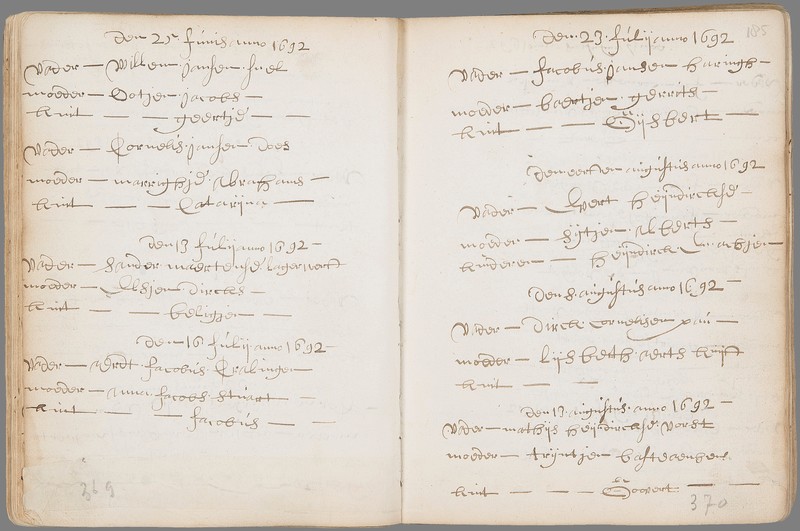 den 25 Junij anno 1692
Vader — Willem Jansen Snel
moeder — Jacobs —
kint — — geertje — —
Vader — Cornelis Jansen Does
moeder — marrighje Abrahams —
kint — — Catarijna —
den 13 Julij anno 1692 —
Vader — Sander maertense lagerwerft
moeder — Elsjen Dircks —
kint — — beligjen —
den 16 Julij anno 1692 —
Vader — Aerdt Jacobus Cralingen
moeder — Anna Jacobs Stuart —
kint — — Jacobus — —
369
185
den 23 Julij anno 1692
Vader — Jacobus Jansen haringh —
moeder — baertjen gerrits —
kint — — Gijsbert —
den eersten augustus anno 1692
Vader — Evert heijndirckse —
moeder — Sijtjen Alberts —
kinderen — — heijndirck
den 8 augustus anno 1692 —
Vader — Dirck Cornelissen pau —
moeder — Lijsbeth Aerts
kint — —
den 13 augustus anno 1692 —
Vader — mathijs heijndirckse Vorst
moeder — trijntjen bastiaensen
kint — — — Govert — —
370